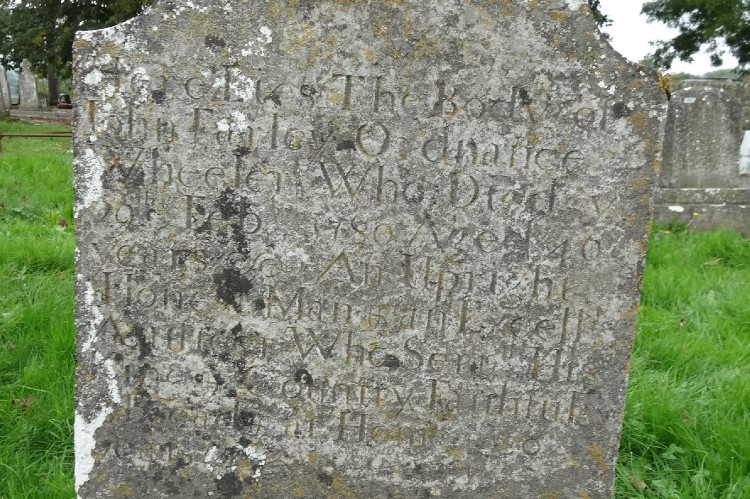 Here Lies The Body of
John Farley Ordnance
Wheeler Who Died y
Feb 1780 Aged 40
years &c An Upright
Honest Man & an Excell
Artificer Who Serv'd His
King & Country Faithfully
at Home
years